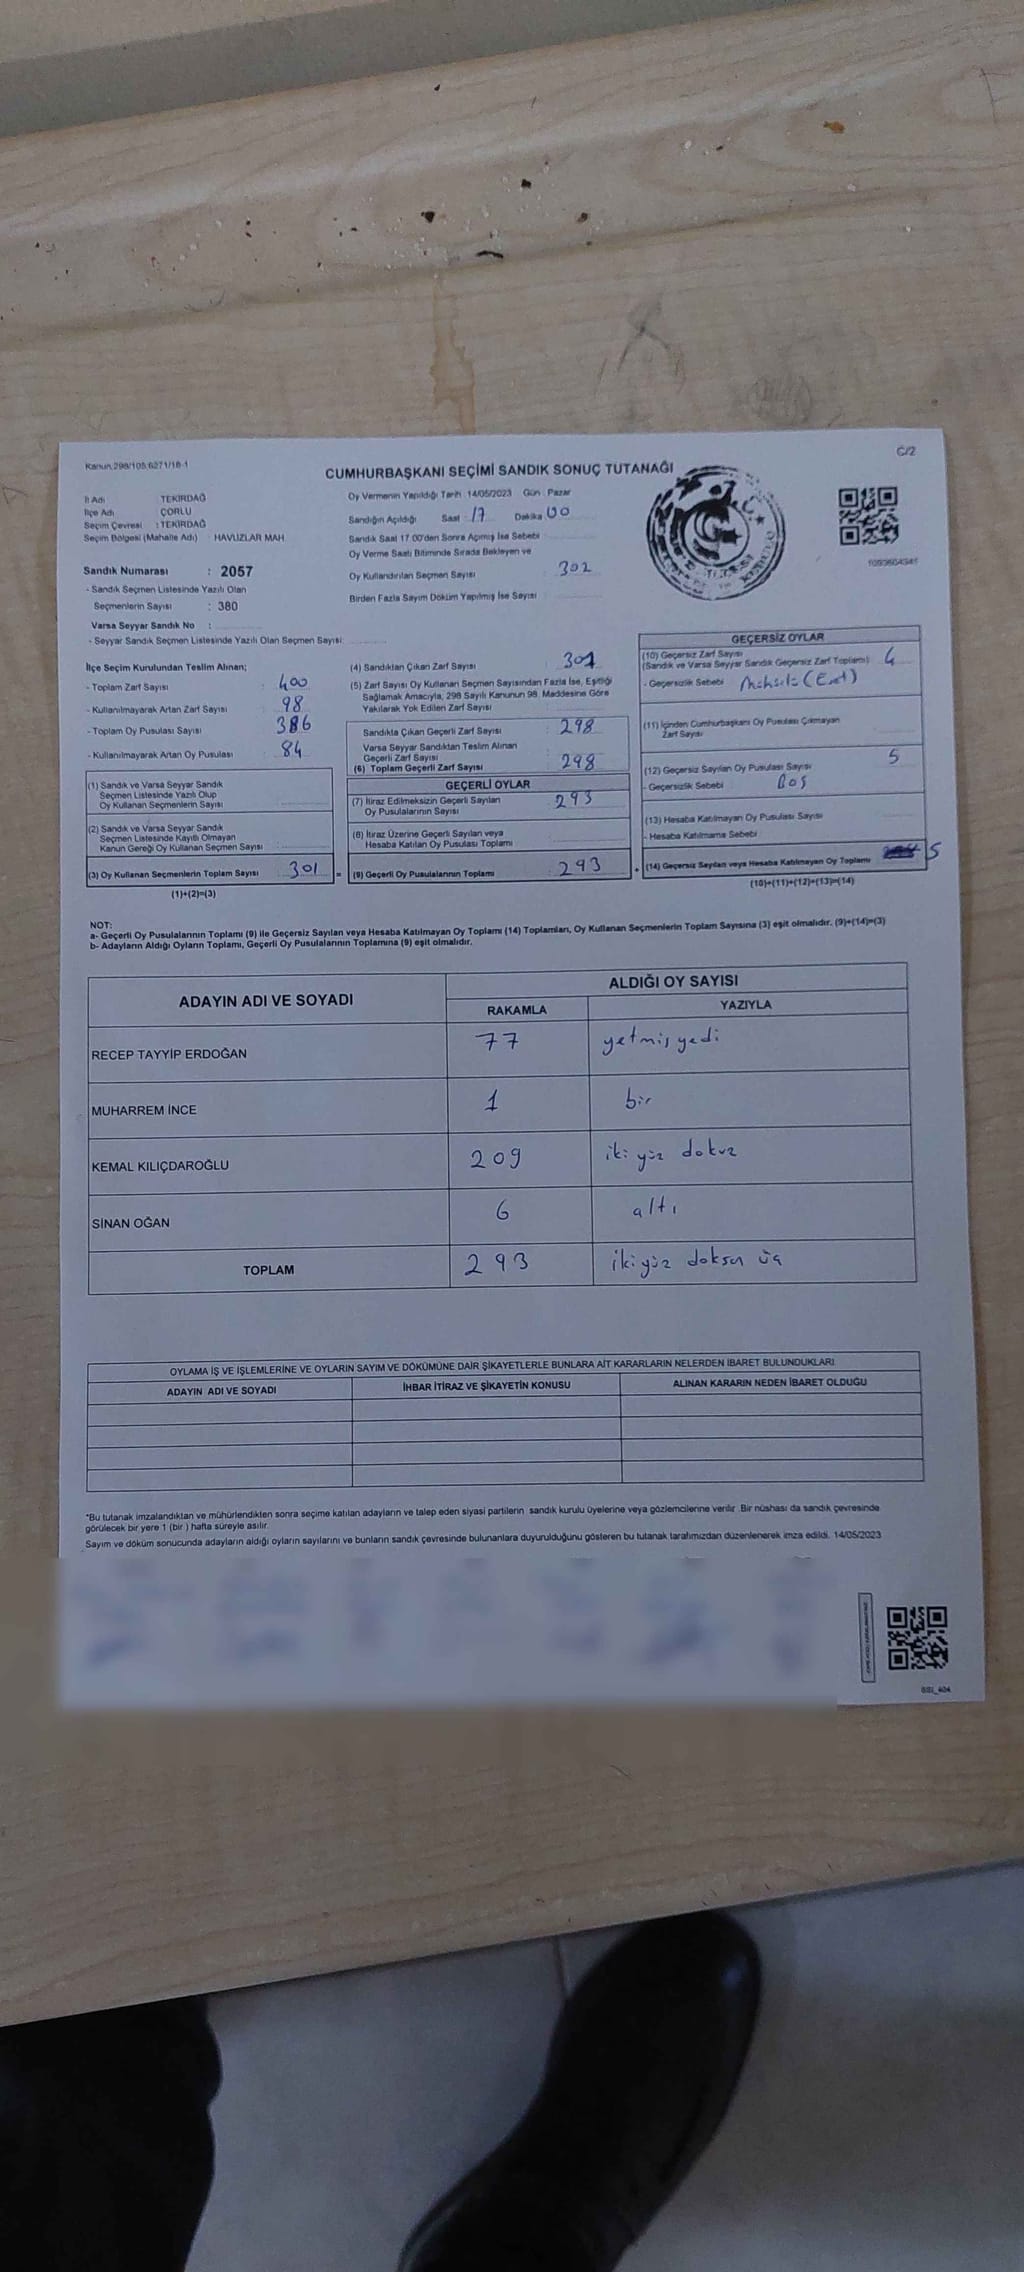 Kanun:298/105;6271/18-1
C/2
CUMHURBAŞKANI SEÇİMİ SANDIK SONUÇ TUTANAĞI
İl Adı : TEKİRDAĞ
İlçe Adı : ÇORLU
Seçim Çevresi : TEKİRDAĞ
Seçim Bölgesi (Mahalle Adı) : HAVUZLAR MAH.
Sandık Numarası : 2057
- Sandık Seçmen Listesinde Yazılı Olan
Seçmenlerin Sayısı : 380
Varsa Seyyar Sandık No :
- Seyyar Sandık Seçmen Listesinde Yazılı Olan Seçmen Sayısı:
Oy Vermenin Yapıldığı Tarih : 14/05/2023 Gün : Pazar
Sandığın Açıldığı Saat : 17 Dakika : 00
Sandık Saat 17.00'den Sonra Açımış İse Sebebi :
Oy Verme Saati Bitiminde Sırada Bekleyen ve
Oy Kullandırılan Seçmen Sayısı : 302
Birden Fazla Sayım Döküm Yapılmış İse Sayısı :
İlçe Seçim Kurulundan Teslim Alınan;
- Toplam Zarf Sayısı : 400
- Kullanılmayarak Artan Zarf Sayısı : 98
- Toplam Oy Pusulası Sayısı : 386
- Kullanılmayarak Artan Oy Pusulası : 84
(1) Sandık ve Varsa Seyyar Sandık
Seçmen Listesinde Yazılı Olup
Oy Kullanan Seçmenlerin Sayısı :
(2) Sandık ve Varsa Seyyar Sandık
Seçmen Listesinde Kayıtlı Olmayan
Kanun Gereği Oy Kullanan Seçmen Sayısı :
(3) Oy Kullanan Seçmenlerin Toplam Sayısı : 301 =
(1)+(2)=(3)
(4) Sandıktan Çıkan Zarf Sayısı : 301
(5) Zarf Sayısı Oy Kullanan Seçmen Sayısından Fazla İse, Eşitliği
Sağlamak Amacıyla, 298 Sayılı Kanunun 98. Maddesine Göre
Yakılarak Yok Edilen Zarf Sayısı :
Sandıkta Çıkan Geçerli Zarf Sayısı : 298
Varsa Seyyar Sandıktan Teslim Alınan
Geçerli Zarf Sayısı
(6) Toplam Geçerli Zarf Sayısı : 298
GEÇERLİ OYLAR
(7) İtiraz Edilmeksizin Geçerli Sayılan
Oy Pusulalarının Sayısı : 293
(8) İtiraz Üzerine Geçerli Sayılan veya
Hesaba Katılan Oy Pusulası Toplamı :
(9) Geçerli Oy Pusulalarının Toplamı : 293 +
GEÇERSİZ OYLAR
(10) Geçersiz Zarf Sayısı
(Sandık ve Varsa Seyyar Sandık Geçersiz Zarf Toplamı) : 4
- Geçersizlik Sebebi :
(11) İçinden Cumhurbaşkanı Oy Pusulası Çıkmayan
Zarf Sayısı :
(12) Geçersiz Sayılan Oy Pusulası Sayısı : 5
- Geçersizlik Sebebi : Boş
(13) Hesaba Katılmayan Oy Pusulası Sayısı :
- Hesaba Katılmama Sebebi :
(14) Geçersiz Sayılan veya Hesaba Katılmayan Oy Toplamı : 5
(10)+(11)+(12)+(13)=(14)
NOT:
a- Geçerli Oy Pusulalarının Toplamı (9) ile Geçersiz Sayılan veya Hesaba Katılmayan Oy Toplamı (14) Toplamları, Oy Kullanan Seçmenlerin Toplam Sayısına (3) eşit olmalıdır. (9)+(14)=(3)
b- Adayların Aldığı Oyların Toplamı, Geçerli Oy Pusulalarının Toplamına (9) eşit olmalıdır.
ADAYIN ADI VE SOYADI
ALDIĞI OY SAYISI
RAKAMLA YAZIYLA
RECEP TAYYİP ERDOĞAN 77 yetmiş yedi
MUHARREM İNCE 1 bir
KEMAL KILIÇDAROĞLU 209 iki yüz dokuz
SİNAN OĞAN 6 altı
TOPLAM 293 iki yüz doksan üç
OYLAMA İŞ VE İŞLEMLERİNE VE OYLARIN SAYIM VE DÖKÜMÜNE DAİR ŞİKAYETLERLE BUNLARA AİT KARARLARIN NELERDEN İBARET BULUNDUKLARI
ADAYIN ADI VE SOYADI İHBAR İTİRAZ VE ŞİKAYETİN KONUSU ALINAN KARARIN NEDEN İBARET OLDUĞU
*Bu tutanak imzalandıktan ve mühürlendikten sonra seçime katılan adayların ve talep eden siyasi partilerin sandık kurulu üyelerine veya gözlemcilerine verilir. Bir nüshası da sandık çevresinde
görülecek bir yere 1 (bir ) hafta süreyle asılır.
Sayım ve döküm sonucunda adayların aldığı oyların sayılarını ve bunların sandık çevresinde bulunanlara duyurulduğunu gösteren bu tutanak tarafımızdan düzenlenerek imza edildi. 14/05/2023